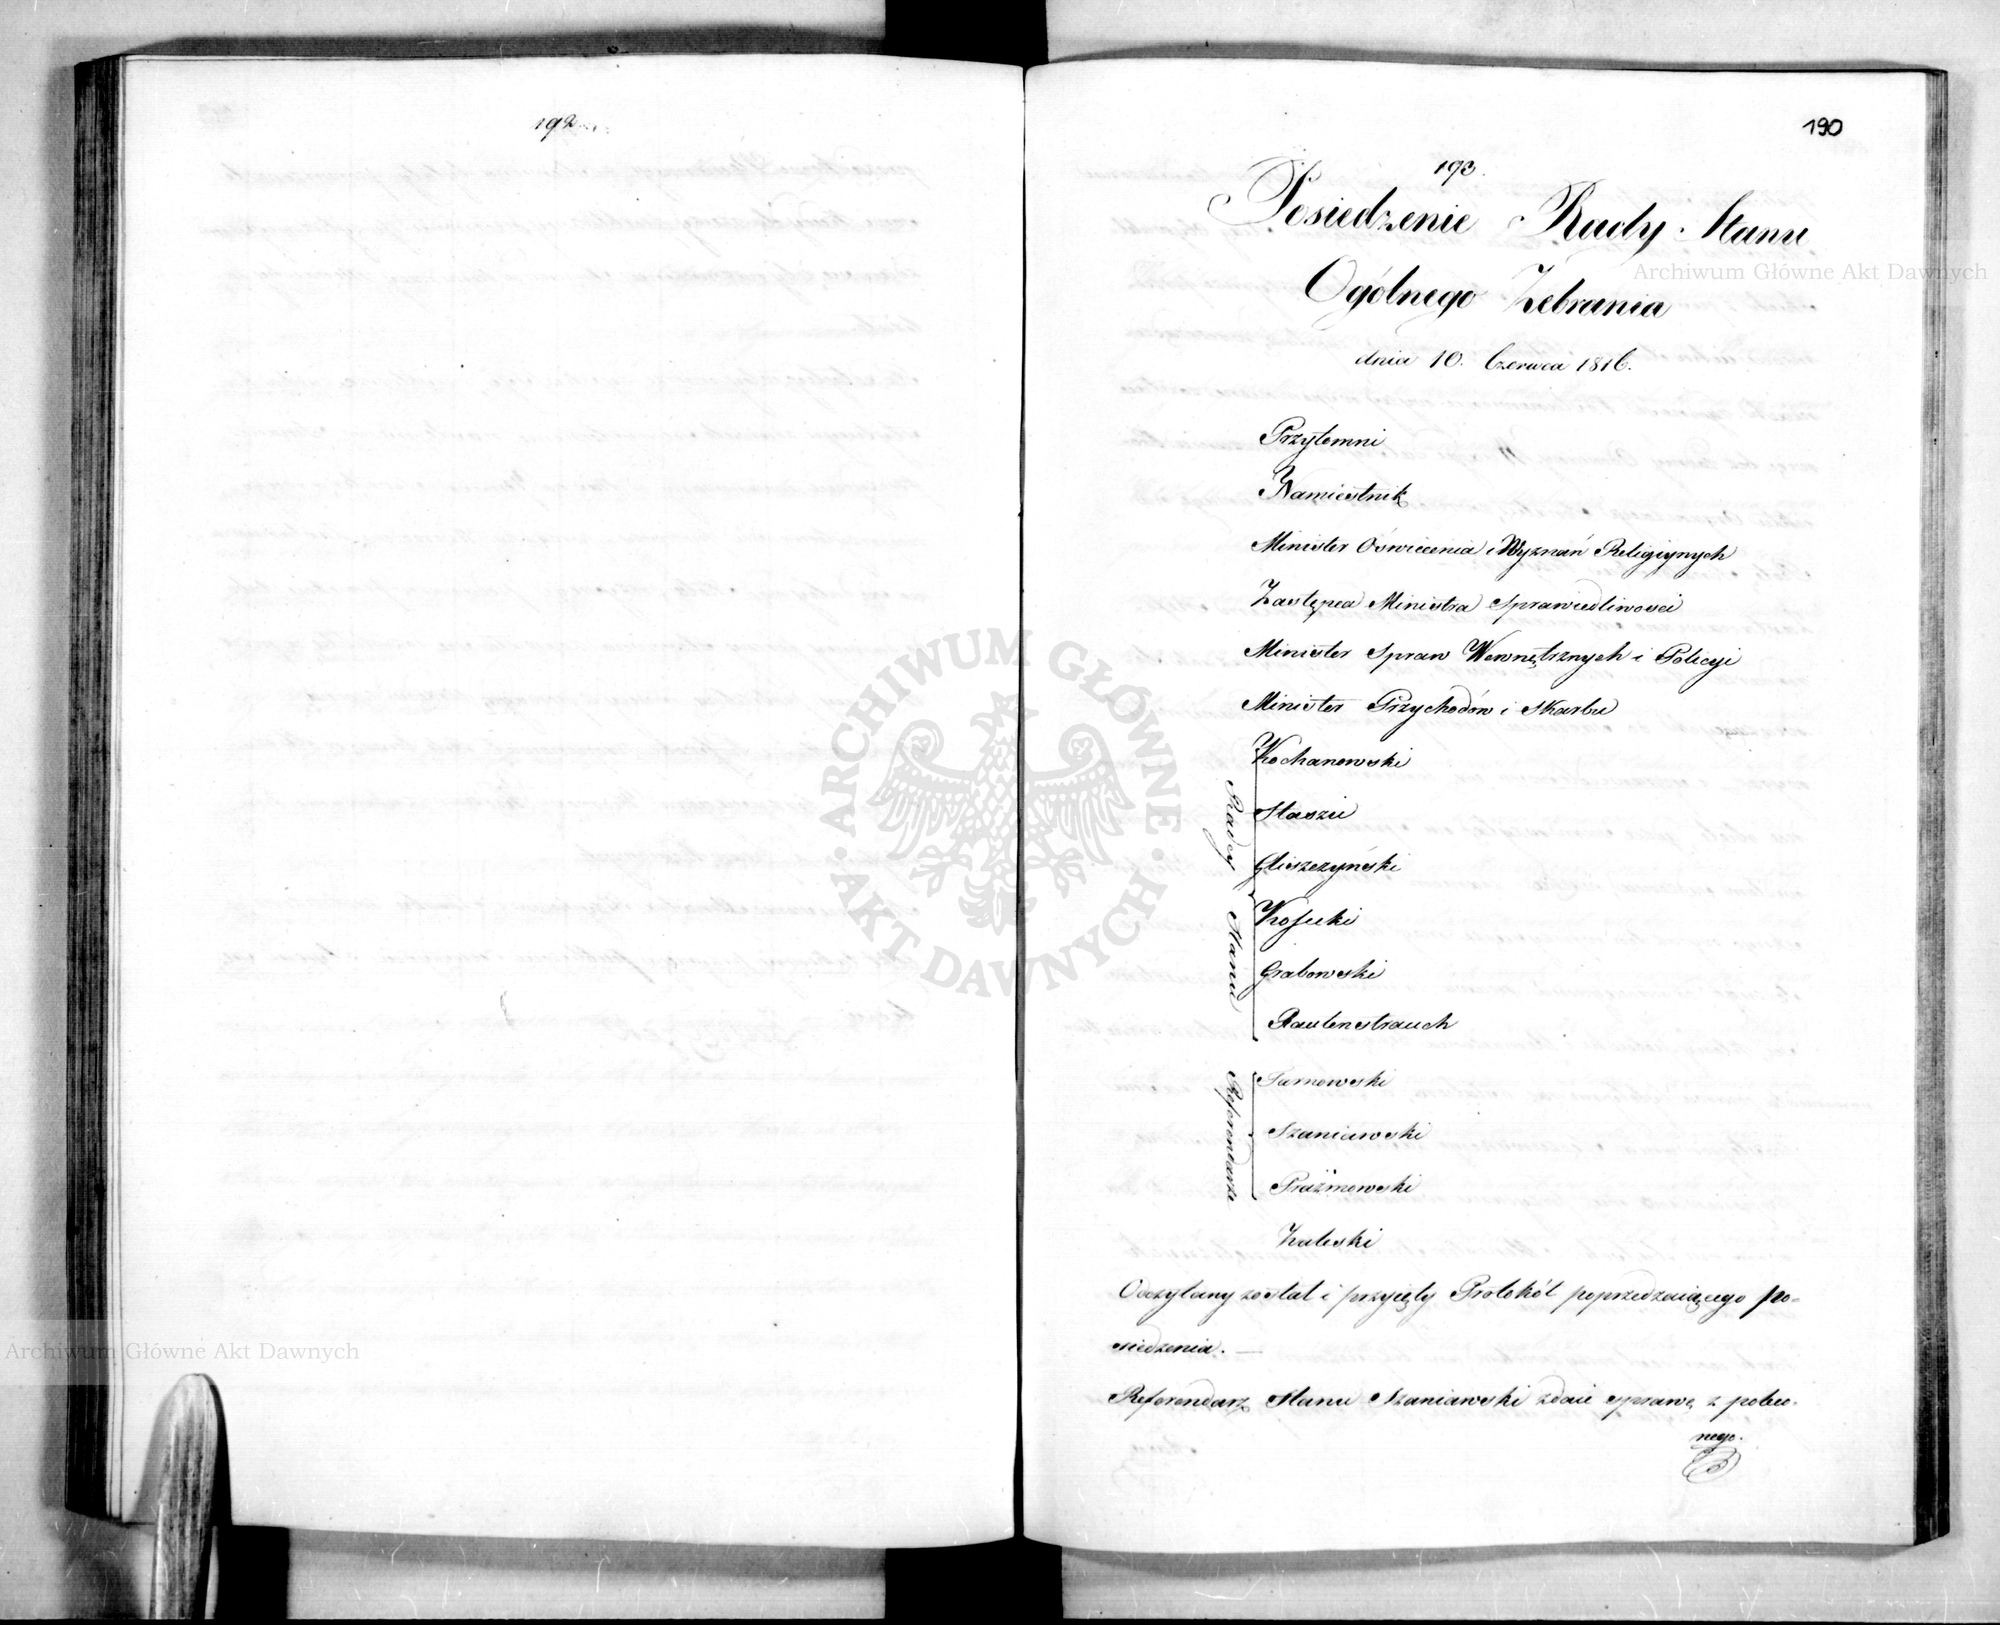 192
190
193.
Posiedzenie Rady Stanu
Ogólnego Zebrania
dnia 10. Czerwca 1816.
Przytomni
Namiestnik
Minister Oświecenia i Wyznań Religiynych
Zastępca Ministra Sprawiedliwości
Minister Spraw Wewnętrznych i Policyi
Minister Przychodów i Skarbu
Radcy Stanu
Kochanowski
Staszic
Gliszczyński
Kossecki
Grabowski
Rautenstrauch
Referendarze
Tarnowski
Szaniawski
Prażmowski
Zaleski
Odczytany został i przyięty Protokół poprzedzaiącego po=
siedzenia. —
Referendarz Stanu Szaniawski zdaie sprawę z poleco-
nego.
Archiwum Główne Akt Dawnych
Archiwum Główne Akt Dawnych
ARCHIWUM GŁÓWNE · AKT DAWNYCH ·